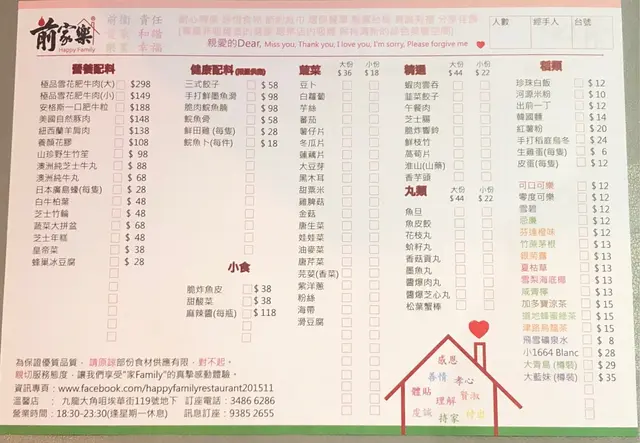 前家樂
Happy Family
責任
和諧
幸福
親愛的Dear, Miss you, Thank you, I love you, I'm sorry, Please forgive me
人數
經手人
台號
營養配料
極品雪花肥牛肉(大) $298
極品雪花肥牛肉(小) $149
安格斯一口肥牛粒 $188
美國自然豚肉 $148
紐西蘭羊肩肉 $138
養顏花膠 $108
山珍野生竹笙 $98
澳洲純芝士牛丸 $88
澳洲純牛丸 $68
日本廣島蠔(每隻) $28
白牛柏葉 $48
芝士竹輪 $48
蔬菜大拼盆 $68
芝士年糕 $48
皇帝菜 $38
蜂巢冰豆腐 $28
健康配料
三式餃子 $58
手打鮮墨魚滑 $98
脆肉鯇魚腩 $98
鯇魚骨 $58
鮮田雞(每隻) $28
鯇魚卜(每件) $18
小食
脆炸魚皮 $38
甜酸菜 $38
麻辣醬(每瓶) $118
蔬菜 大份 $36 小份 $18
豆卜
白蘿蔔
芋絲
蕃茄
薯仔片
冬瓜片
蓮藕片
大豆芽
黑木耳
甜粟米
雞脾菇
金菇
唐生菜
娃娃菜
油麥菜
唐芹菜
芫荽(香菜)
紫洋蔥
粉絲
海帶
滑豆腐
精選 大份 $44 小份 $22
蝦肉雲吞
韮菜餃子
午餐肉
芝士腸
脆炸響鈴
鮮枝竹
萵筍片
淮山(山藥)
香芋頭
丸類 大份 $44 小份 $22
魚旦
魚皮餃
花枝丸
蛤籽丸
香菇貢丸
墨魚丸
醬爆肉丸
醬爆芝心丸
松葉蟹棒
麵類
珍珠白飯 $12
河源米粉 $10
出前一丁 $12
韓國麵 $14
紅薯粉 $20
手打稻庭烏冬 $24
生雞蛋(每隻) $6
皮蛋(每隻) $12
可口可樂 $12
零度可樂 $12
雪碧 $12
忌廉 $12
芬達橙味 $12
竹蔗茅根 $13
銀菊露 $13
夏枯草 $13
雪梨海底椰 $13
咸青檸 $13
加多寶涼茶 $15
道地蜂蜜綠茶 $15
津路烏龍茶 $15
飛雪礦泉水 $8
小1664 Blanc $28
大青島 (樽裝) $29
大藍妹 (樽裝) $35
為保證優質品質, 請原諒部份食材供應有限, 對不起。
親切服務態度, 讓我們享受"家Family"的真摯感動體驗。
資訊專頁 : www.facebook.com/happyfamilyrestaurant201511
溫馨店 : 九龍大角咀埃華街119號地下 訂座電話 : 3486 6286
營業時間 : 18:30-23:30(逢星期一休息) 訊息訂座 : 9385 2655
感恩
善情
孝心
體貼
理解
賢淑
虔誠
持家
付出